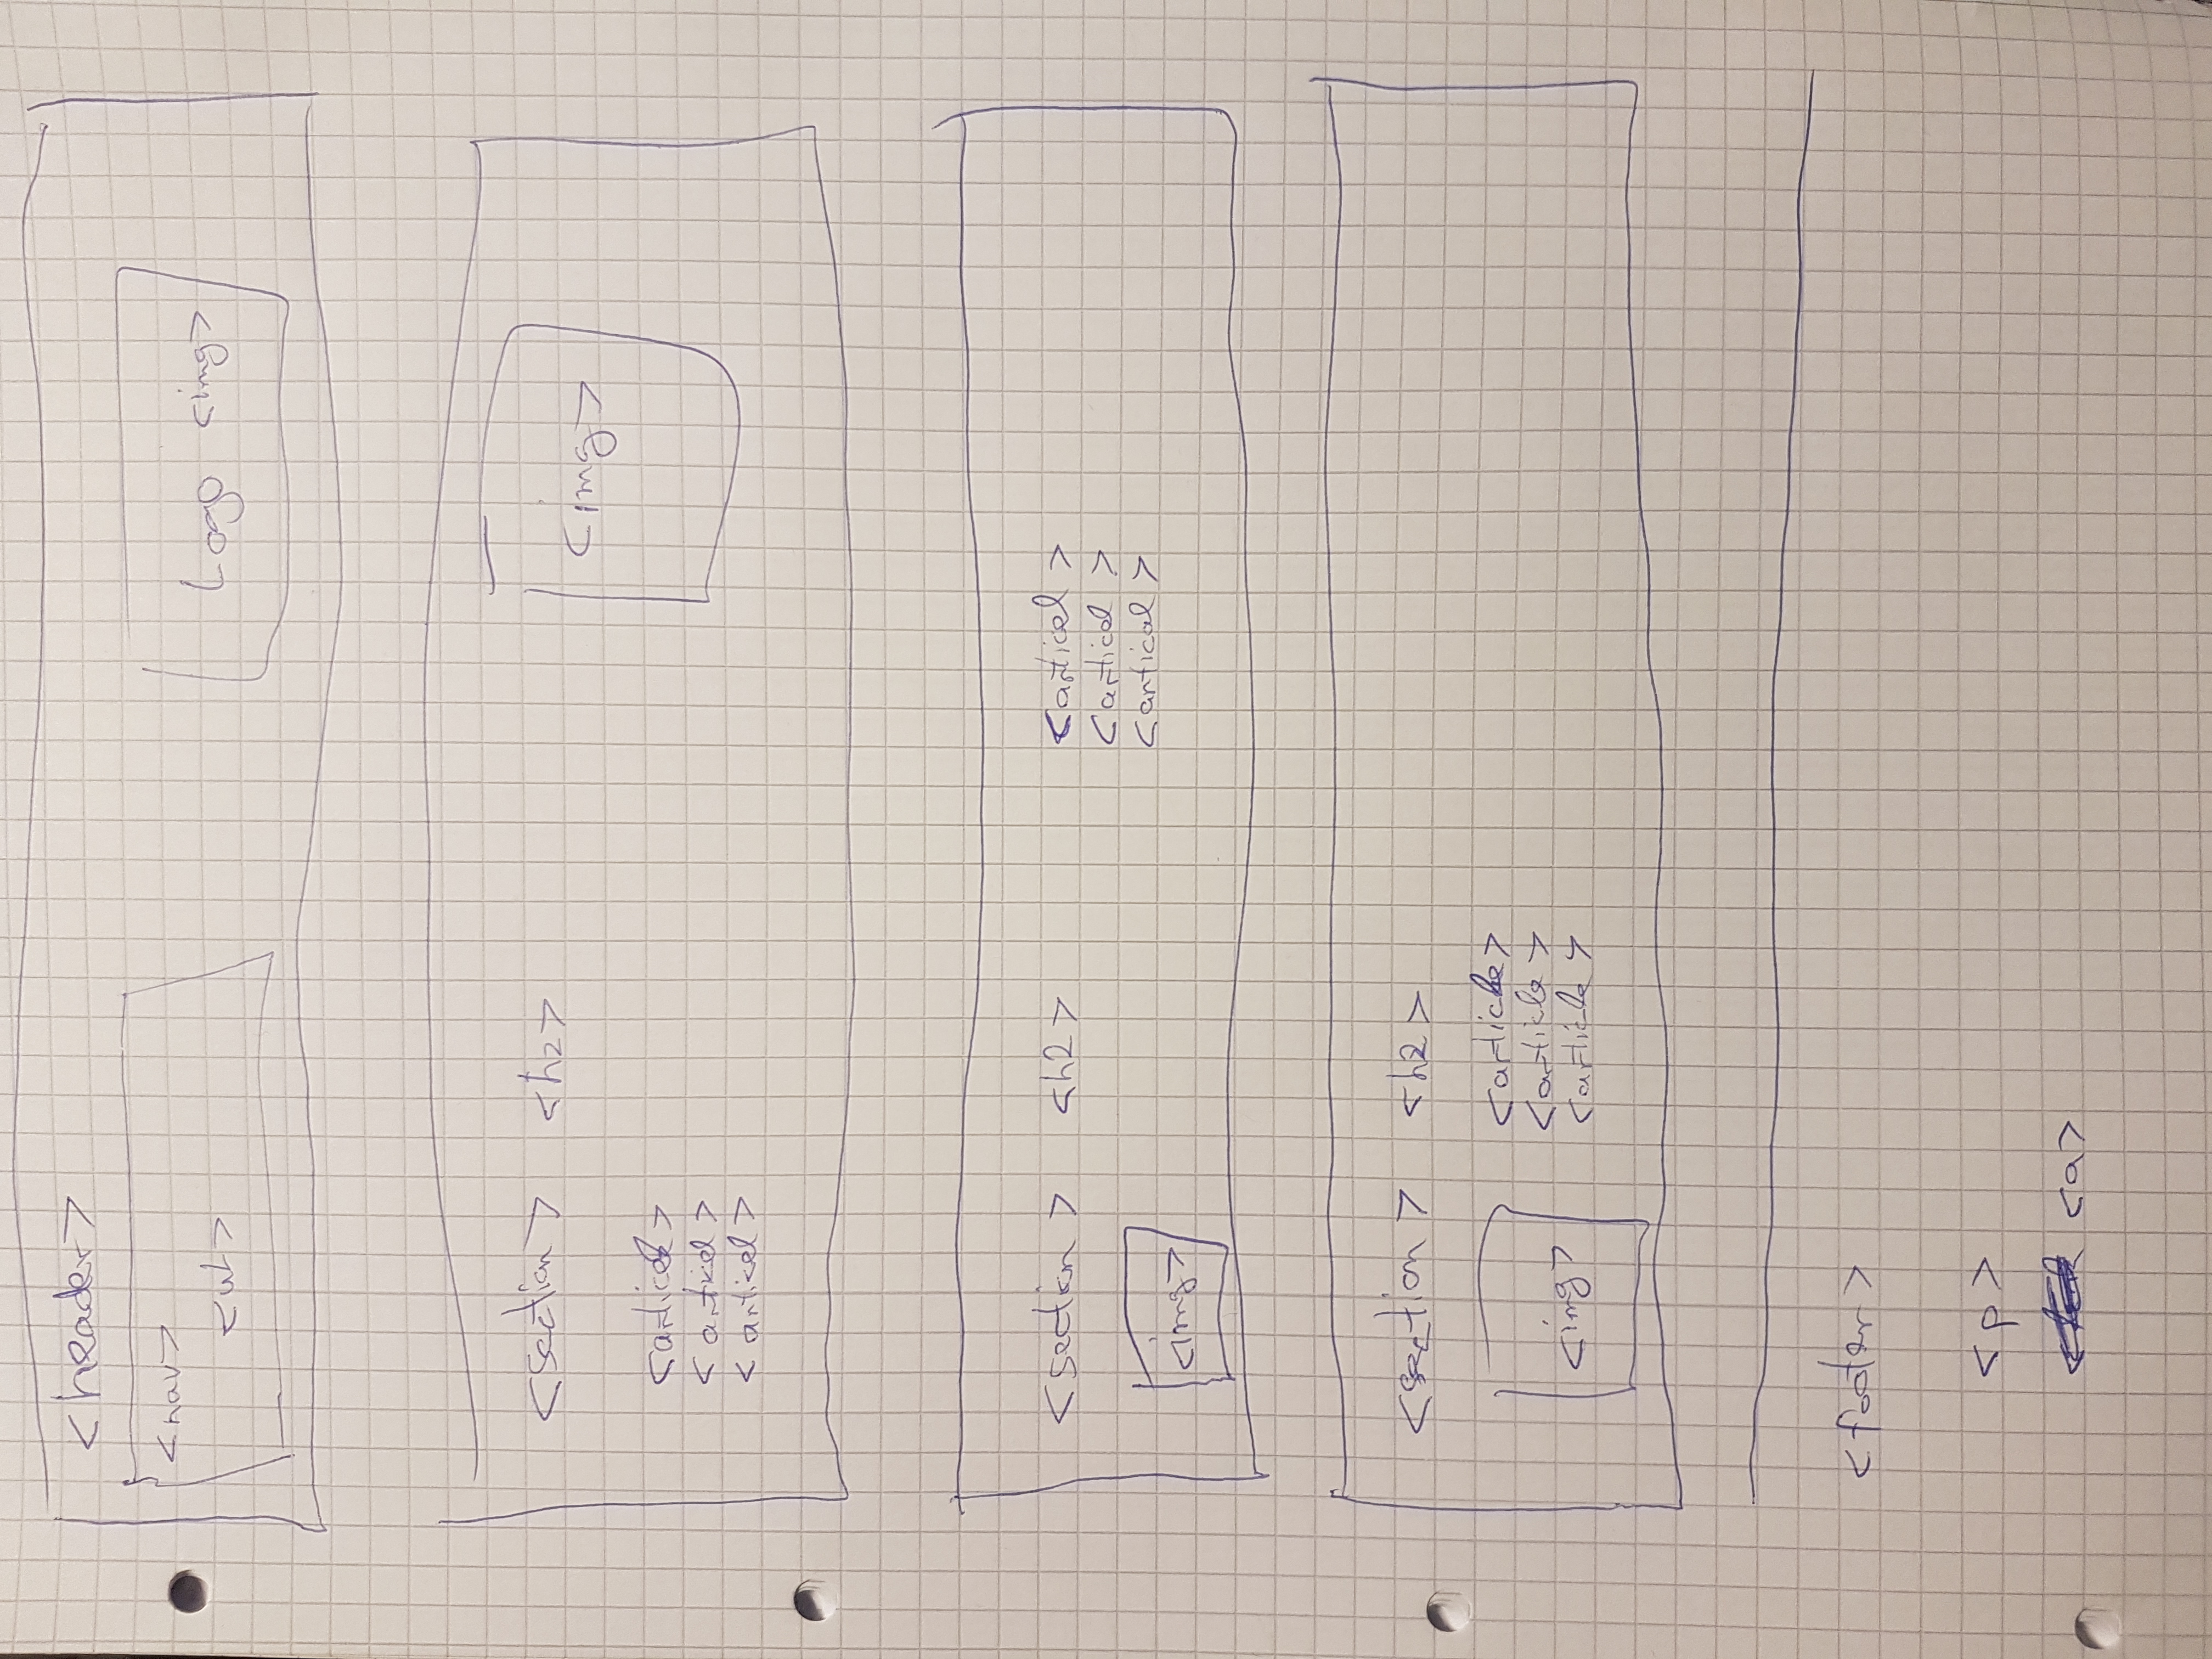 <header>
<nav>
<ul>
Logo <img>
<section> <h2>
<img>
<articel>
<articel>
<articel>
<section> <h2>
<articel>
<articel>
<artical>
<img>
<section> <h2>
<article>
<article>
<article>
<img>
<footer>
<p>
<a>